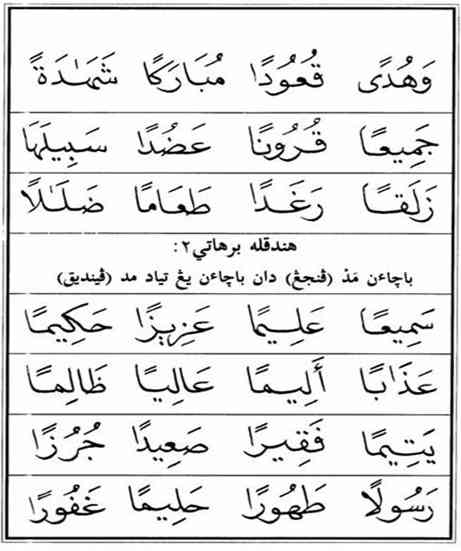 وَهُدًى قُعُودًا مُبَارَكًا شَهَـٰدَةً
جَمِيعًا قُرُونًا عَضُدًا سَبِيلَهَا
زَلَقًا رَغَدًا طَعَامًا ضَلَـٰلًا
هندقله برهاتي٢:
باچاءن مَدْ (ڤنجڠ) دان باچاءن يڠ تياد مد (ڤيندين)
سَمِيعًا عَلِيمًا عَزِيزًا حَكِيمًا
عَذَابًا أَلِيمًا عَالِيًا ظَالِمًا
يَتِيمًا فَقِيرًا صَعِيدًا جُرُزًا
رَسُولًا طَهُورًا حَلِيمًا غَفُورًا